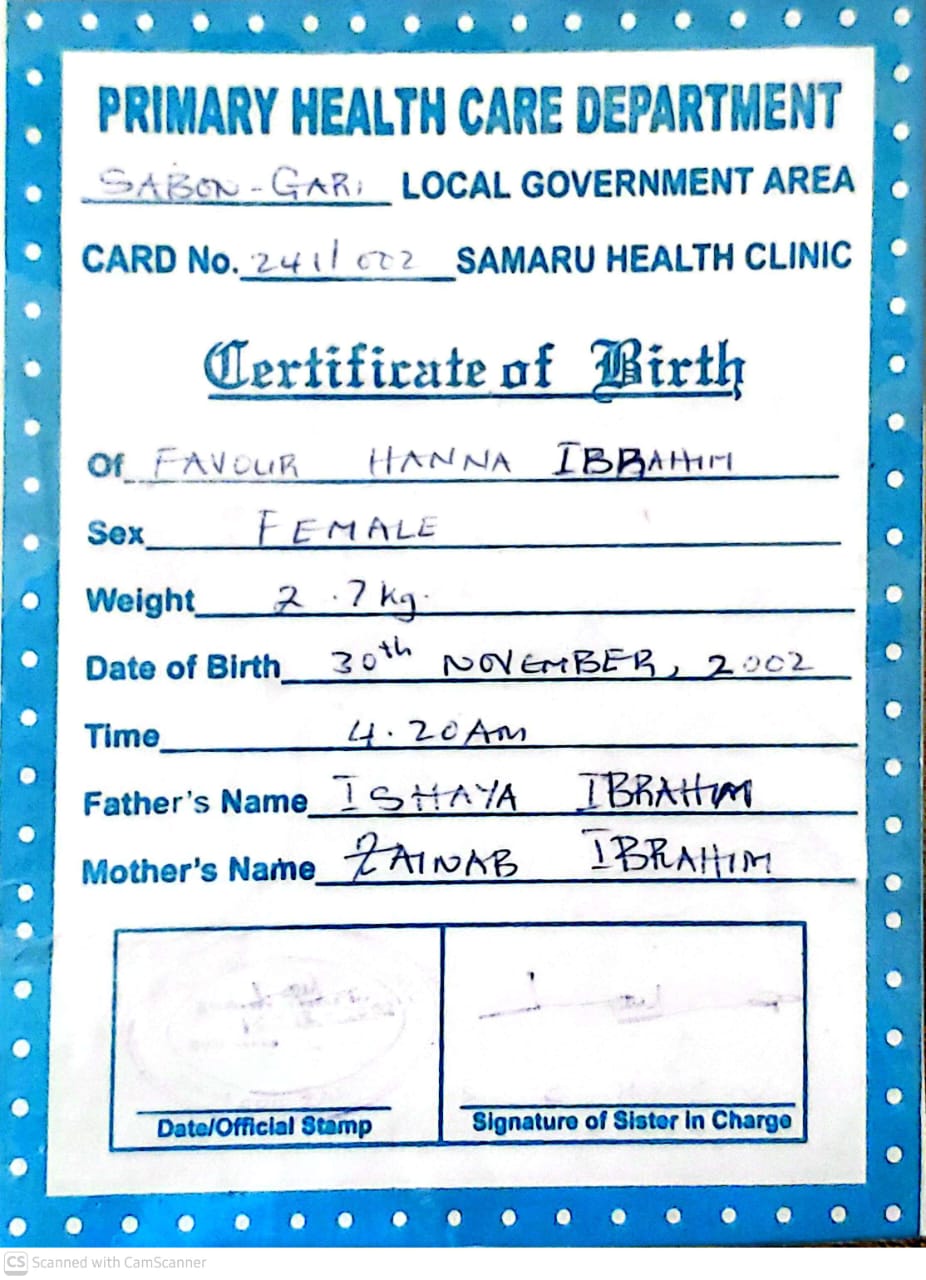 PRIMARY HEALTH CARE DEPARTMENT
SABON-GARI LOCAL GOVERNMENT AREA
CARD No. 241/002 SAMARU HEALTH CLINIC
Certificate of Birth
Of FAVOUR HANNA IBRAHIM
Sex FEMALE
Weight 2.7kg.
Date of Birth 30th NOVEMBER, 2002
Time 4.20AM
Father's Name ISHAYA IBRAHIM
Mother's Name ZAINAB IBRAHIM
Date/Official Stamp
Signature of Sister In Charge
CS Scanned with CamScanner